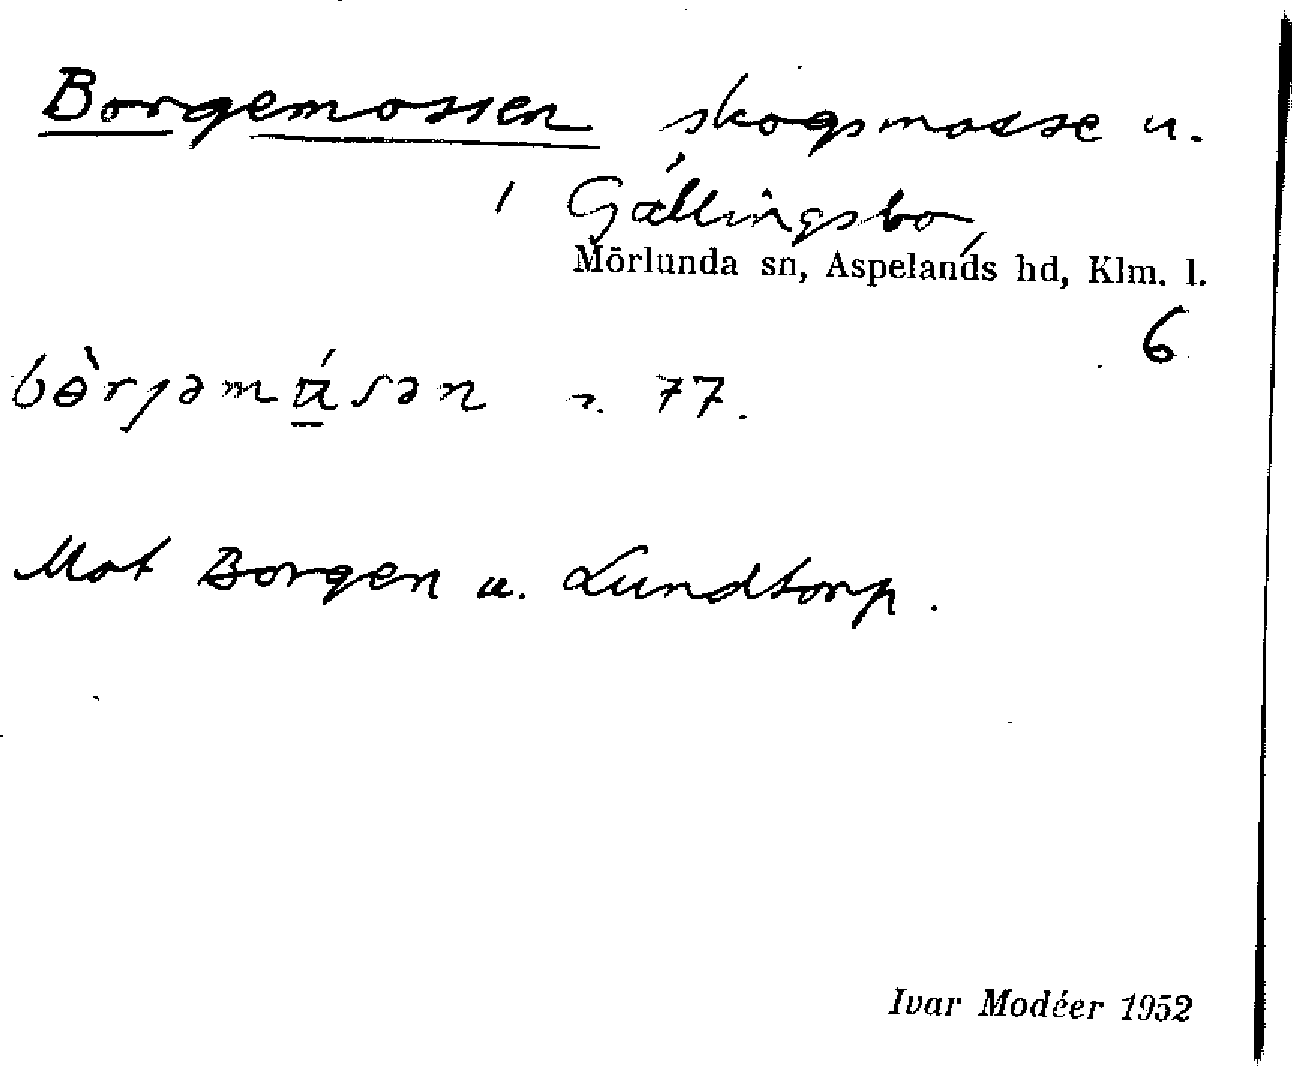 Borgemossen skogsmosse u.
i Gällingsbo,
Mörlunda sn, Aspelands hd, Klm. l.
6
s. 77.
Mot Borgen u. Lundtorp.
Ivar Modéer 1952